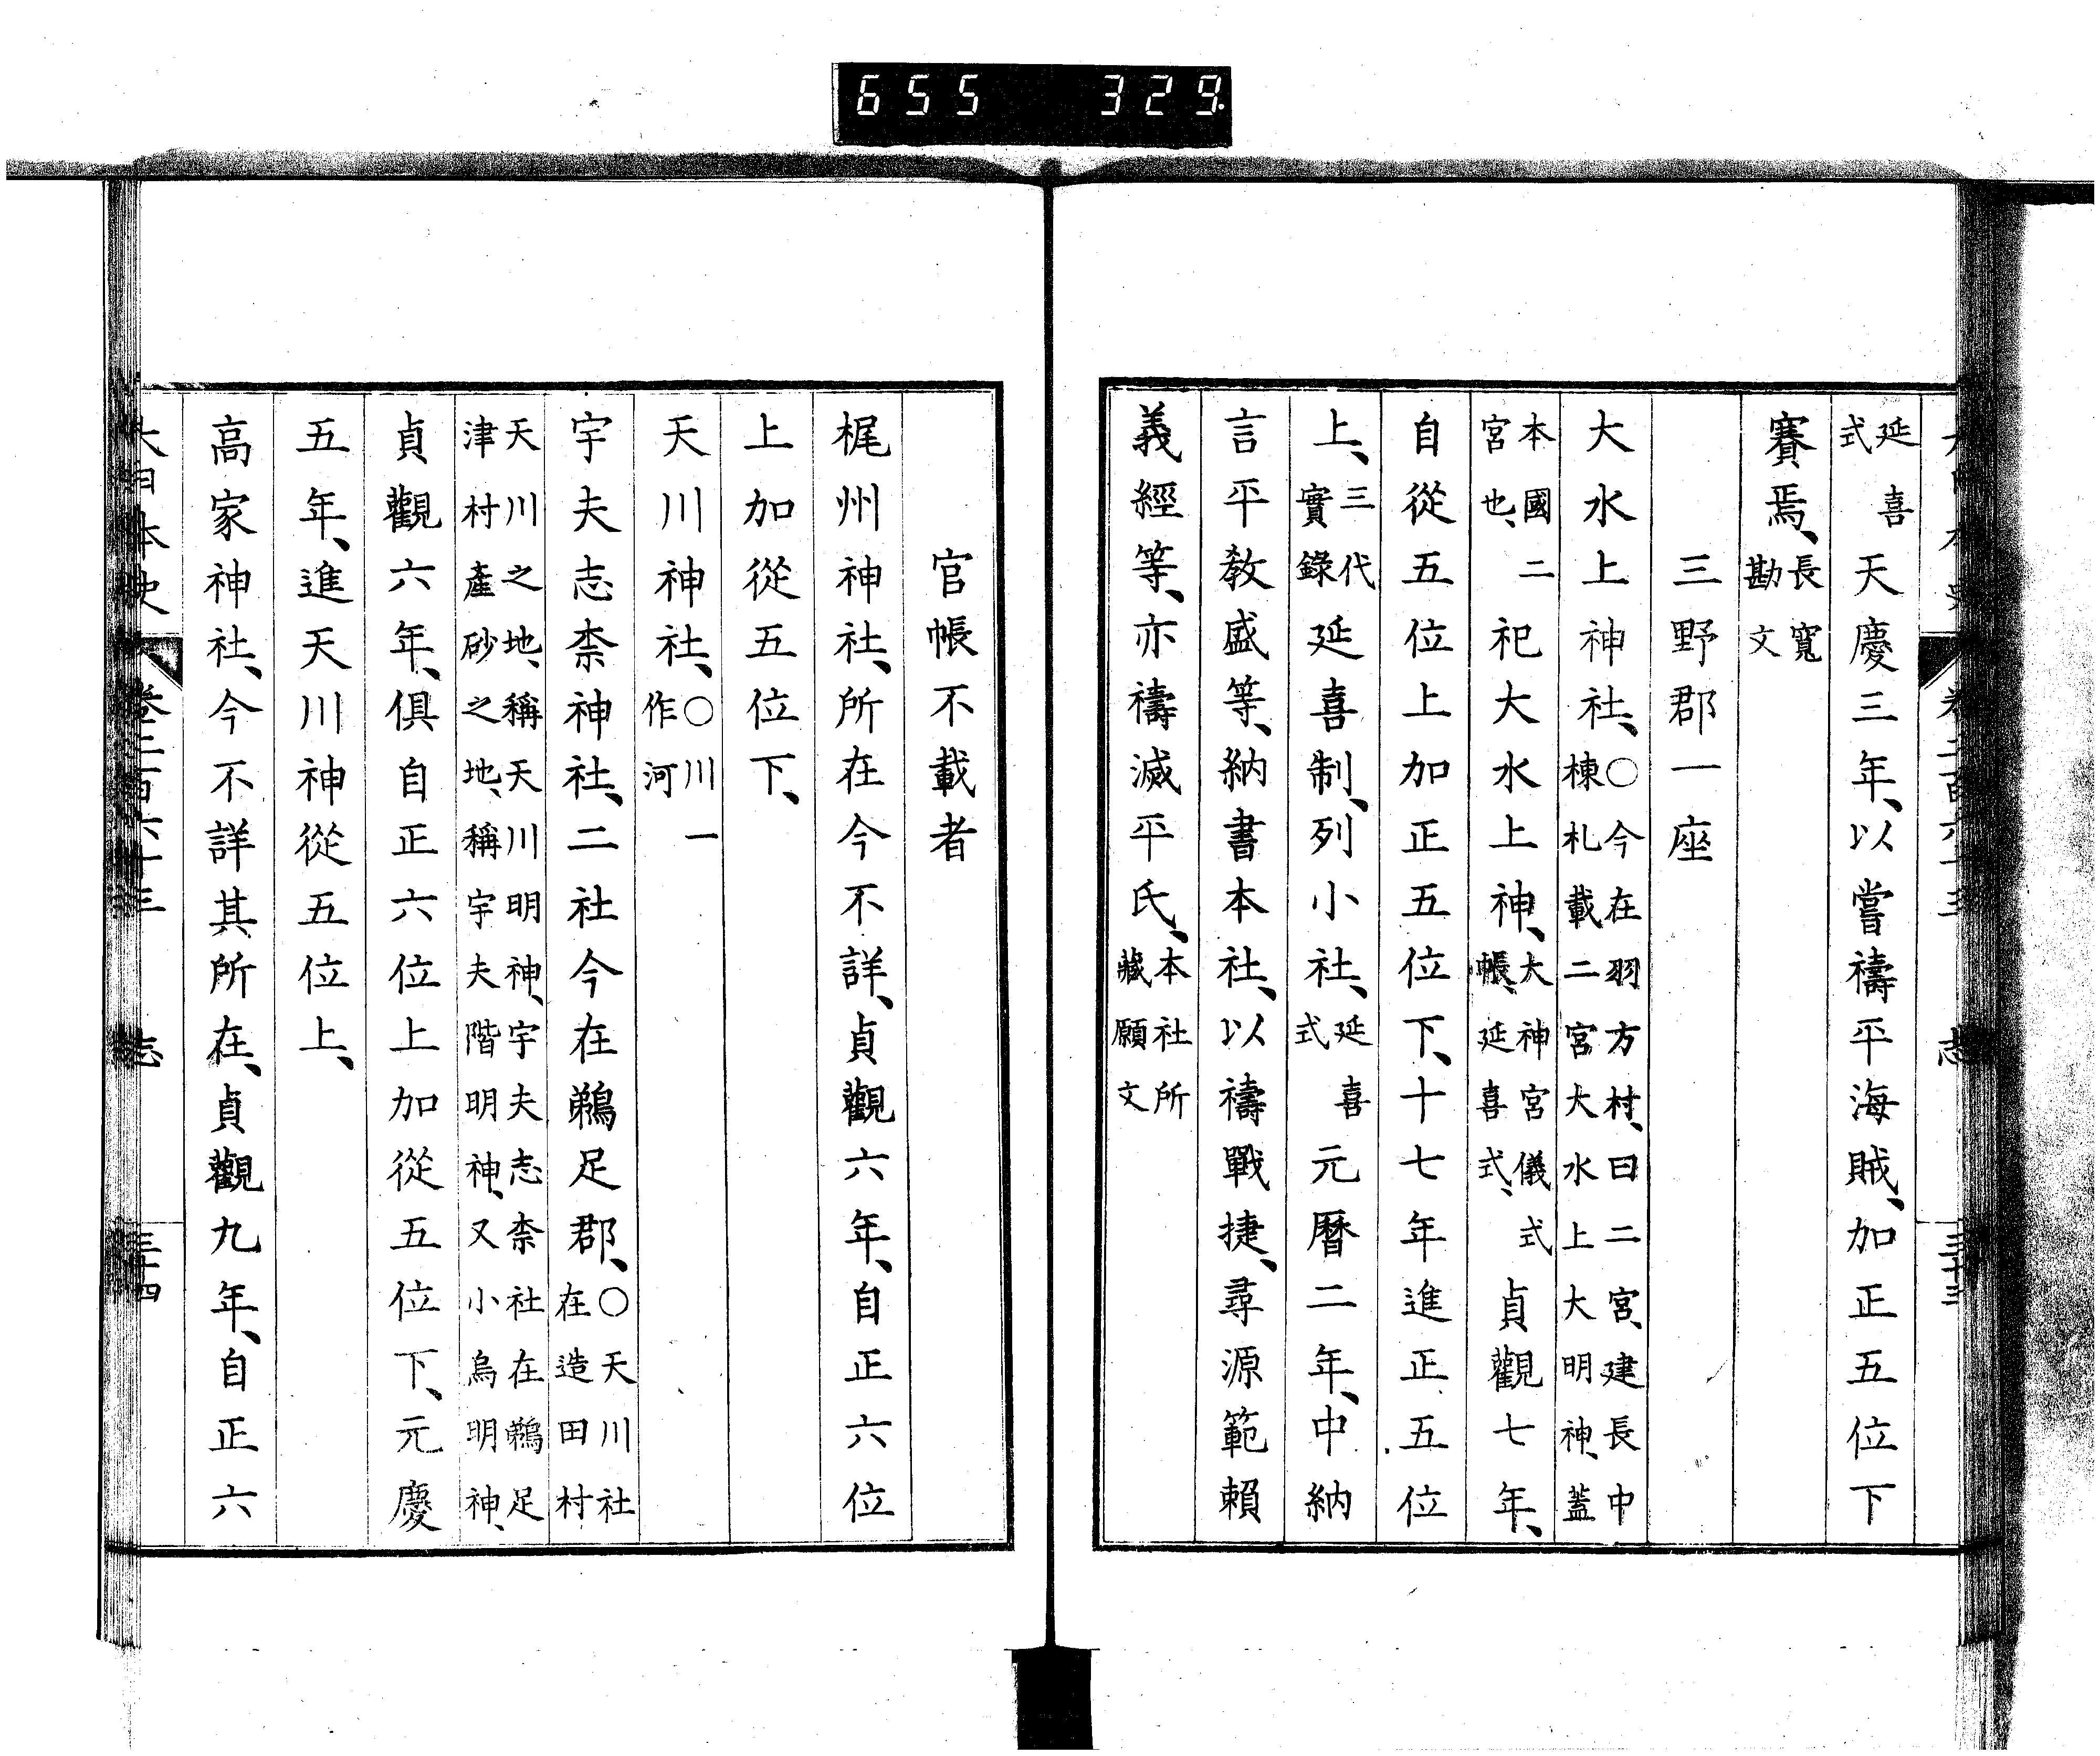 655 329
延喜式天慶三年、以嘗禱平海賊、加正五位下
賽焉、長寬勘文
三野郡一座
大水上神社、○今在羽方村、曰二宮、建長中棟札載二宮大水上大明神、蓋
本國二宮也、祀大水上神、大神宮儀式帳、延喜式、貞觀七年、
自從五位上加正五位下、十七年進正五位
上、三代實錄延喜制、列小社、延喜式元曆二年、中納
言平教盛等、納書本社、以禱戰捷、尋源範賴
義經等、亦禱滅平氏、本社所藏願文
官帳不載者
梶州神社、所在今不詳、貞觀六年、自正六位
上加從五位下、
天川神社、○川一作河
宇夫志柰神社、二社今在鵜足郡、○天川社在造田村
天川之地、稱天川明神、宇夫志柰社在鵜足津村產砂之地、稱宇夫階明神、又小烏明神、
貞觀六年、俱自正六位上加從五位下、元慶
五年、進天川神從五位上、
高家神社、今不詳其所在、貞觀九年、自正六
大日本史 卷二百六十三 志 三十四